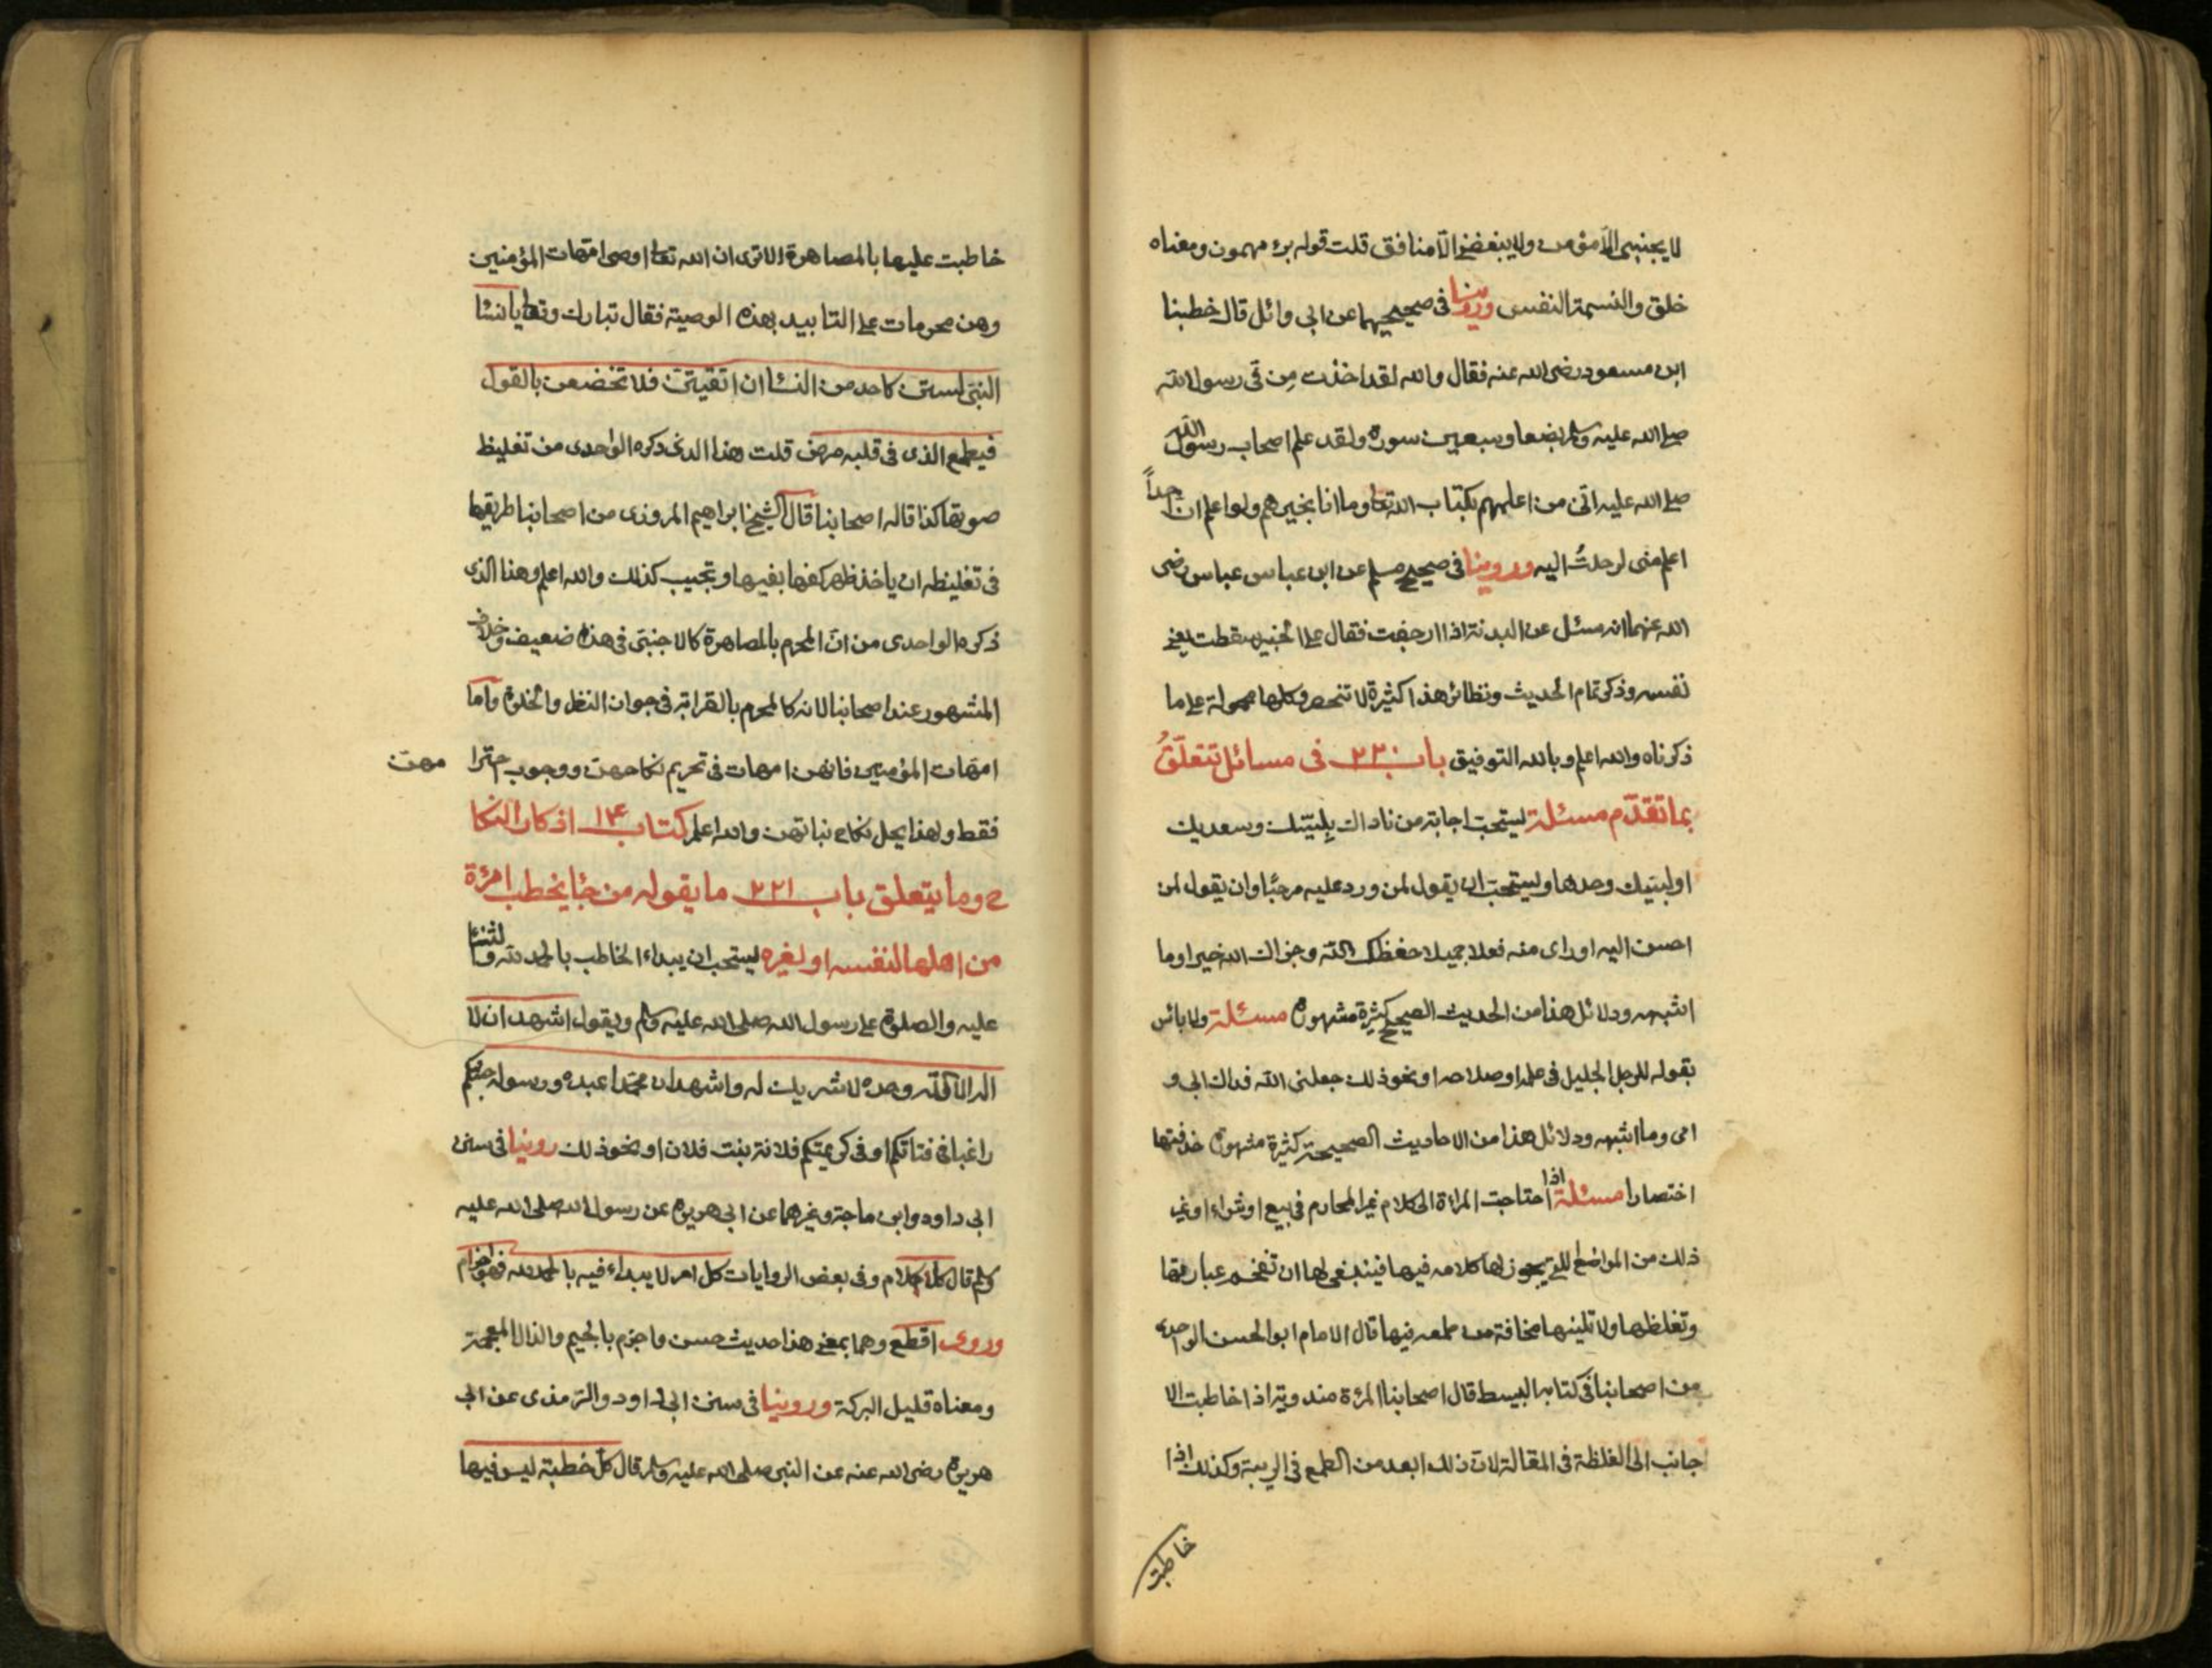 لا يحبني الا مؤمن ولا يبغضني الا منافق قلت قوله برء مهموز ومعناه
خلق والنسمة النفس وروينا في صحيحيهما عن ابي وائل قال خطبنا
ابن مسعود رضى الله عنه فقال والله لقد اخذت مِن في رسول الله
صلى الله عليه وسلم بضعا وسبعين سورة ولقد علم اصحاب رسول الله
صلى الله عليه اني من اعلمهم بكتاب الله تعا وما انا بخيرهم ولو اعلم ان احداً
اعلم منى لرحلتُ اليه وروينا في صحيح مسلم عن ابن عباس عباس رضى
الله عنهما انه سئل عن البدنة اذا ارجفت فقال على الخبير سقطت يعني
نفسه وذكر تمام الحديث ونظائر هذا كثيرة لا تنحصر وكلها محمولة على ما
ذكرناه والله اعلم وبالله التوفيق باب ٢٢٠ فى مسائل تتعلّقُ
بما تقدّم مسئلة يستحبّ اجابة من ناداك بِلبيّك وسعديك
او لبيك وحدها ويستحبّ ان يقول لمن ورد عليه مرحبًا وان يقول لمن
احسن اليه او راى منه فعلا جميلا حفظك الله وجزاك الله خيرا وما
اشبهه ودلائل هذا من الحديث الصحيح كثيرة مشهورة مسئلة ولا بائس
بقوله للرجل الجليل فى علمه او صلاحه او نحو ذلك جعلنى الله فداك ابي و
امى وما اشبهه ودلائل هذا من الاحاديث الصحيحة كثيرة مشهورة حذفتها
اختصارا مسئلة اذا احتاجت المراة الى كلام غير المحارم فى بيع او شراء او غير
ذلك من المواضع التي يجوز لها كلامه فيها فينبغى لها ان تفخم عبارتها
وتغلظها ولا تلينها مخافة من طمعه فيها قال الامام ابو الحسن الواحدى
من اصحابنا فى كتابه البسيط قال اصحابنا المرئة مندوبة اذا خاطبت الا
جانب الى الغلظة فى المقالة لان ذلك ابعد من الطمع فى الريبة وكذلك اذا
خاطبت
خاطبت عليها بالمصاهرة الا ترى ان الله تعا اوصى امهات المؤمنين
وهن محرمات على التابيد بهذه الوصية فقال تبارك وتعا يا نسا
النبى لستن كاحد من النسا ان اتقيتن فلا تخضعن بالقول
فيطمع الذى فى قلبه مرض قلت هذا الذى ذكره الواحدى من تغليظ
صوتها كذا قاله اصحابنا قال الشيخ ابراهيم المروزى من اصحابنا طريقها
فى تغليظه ان ياخذ ظهر كفها بفيها وتجيب كذلك والله اعلم وهذا الذى
ذكره الواحدى من انّ المحرم بالمصاهرة كالاجنبى فى هذا ضعيف وخلاف
المشهور عند اصحابنا لانه كالمحرم بالقرابة فى جواز النظر والخلوة واما
امهات المؤمنين فانهن امهات فى تحريم نكاحهن ووجوب احترا مهن
فقط ولهذا يحل نكاح بناتهن والله اعلم كتاب ١٤ اذكار النكا
ح وما يتعلق باب ٢٢١ ما يقوله من جٓا يخطب امرئة
من اهلها لنفسه او لغيره يستحب ان يبداء الخاطب بالحمد لله والثنا
عليه والصلوة على رسول الله صلى الله عليه وسلم ويقول اشهد ان لا
اله الا الله وحده لا شريك له واشهد ان محمدا عبده ورسوله جئتكم
راغبا فى فتاتكم او فى كريمتكم فلانة بنت فلان او نحو ذلك روينا فى سنن
ابى داود وابن ماجة وغيرهما عن ابى هريرة عن رسول الله صلى الله عليه
وسلم قال كل كلام وفى بعض الروايات كل امر لا يبداء فيه بالحمد لله فهو اجزام
وروى اقطع وهما بمعنى هذا حديث حسن واجزم بالجيم والذال المعجمة
ومعناه قليل البركة وروينا فى سنن ابى داود والترمذى عن ابى
هريرة رضى الله عنه عن النبى صلى الله عليه وسلم قال كلّ خطبة ليس فيها